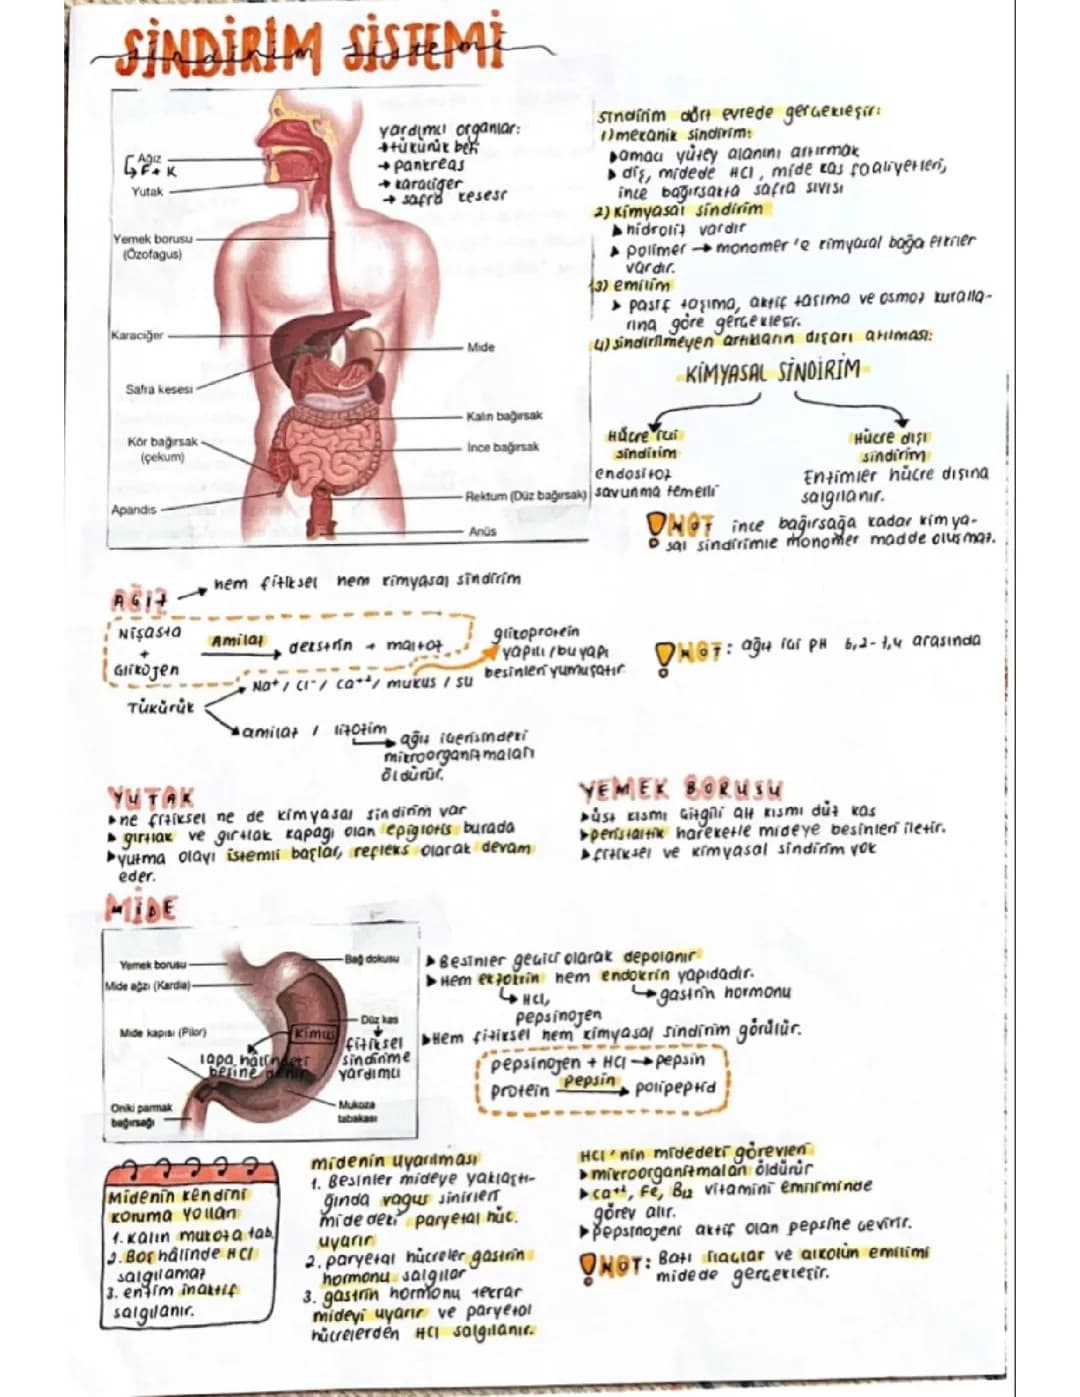 SİNDİRİM SİSTEMİ
sindirim sistemi
Ağız
↳F+K
Yutak
Yemek borusu
(Özofagus)
Karaciğer
Safra kesesi
Kör bağırsak
(çekum)
Apandis
yardımcı organlar:
→tükürük bezi
→pankreas
→karaciğer
→safra kesesi
Mide
Kalın bağırsak
İnce bağırsak
Rektum (Düz bağırsak)
Anüs
sindirim dört evrede gerçekleşir:
1)mekanik sindirim:
▸amacı yüzey alanını artırmak
▸diş, midede HCl, mide kas faaliyetleri,
ince bağırsakta safra sıvısı
2)kimyasal sindirim
▸hidroliz vardır
▸polimer → monomer 'e kimyasal bağa etkiler
vardır.
3) emilim
▸pasif taşıma, aktif taşıma ve osmoz kuralla-
rına göre gerçekleşir.
4)sindirilmeyen artıkların dışarı atılması:
KİMYASAL SİNDİRİM
Hücre içi
sindirim
endositoz
savunma temelli
Hücre dışı
sindirim
Enzimler hücre dışına
salgılanır.
!NOT ince bağırsağa kadar kimya-
sal sindirimle monomer madde oluşmaz.
AĞIZ → hem fiziksel hem kimyasal sindirim
Nişasta
+
Glikojen
Amilaz → dekstrin + maltoz
glikoprotein
yapılı / bu yapı
besinleri yumuşatır.
!NOT: ağız içi PH 6,2-7,4 arasında
Tükürük
Na+ / Cl- / Ca+2 / mukus / su
amilaz / lizozim
ağız içerisindeki
mikroorganizmaları
öldürür.
YUTAK
▸ne fiziksel ne de kimyasal sindirim var
▸gırtlak ve gırtlak kapağı olan epiglotis burada
▸yutma olayı istemli başlar, refleks olarak devam
eder.
YEMEK BORUSU
▸üst kısmı çizgili alt kısmı düz kas
▸peristaltik hareketle mideye besinleri iletir.
▸fiziksel ve kimyasal sindirim yok
MİDE
Yemek borusu
Mide ağzı (Kardia)
Mide kapısı (Pilor)
Oniki parmak
bağırsağı
Bağ dokusu
Düz kas
fiziksel
sindirime
yardımcı
Kimus
lapa hâlindeki
besine denir
Mukoza
tabakası
▸Besinler geçici olarak depolanır
▸Hem ekzokrin hem endokrin yapıdadır.
↳HCl,
pepsinojen
↳gastrin hormonu
▸Hem fiziksel hem kimyasal sindirim görülür.
pepsinojen + HCl → pepsin
protein pepsin → polipeptid
Midenin kendini
koruma yolları
1. Kalın mukoza tab.
2. Boş hâlinde HCl
salgılamaz
3. enzim inaktif
salgılanır.
midenin uyarılması
1. Besinler mideye yaklaştı-
ğında vagus sinirleri
mide deki paryetal hüc.
uyarır
2. paryetal hücreler gastrin
hormonu salgılar
3. gastrin hormonu tekrar
mideyi uyarır ve paryetal
hücrelerden HCl salgılanır.
HCl'nin midedeki görevleri
▸mikroorganizmaları öldürür
▸Ca++, Fe, B12 vitamini emiliminde
görev alır.
▸pepsinojeni aktif olan pepsine çevirir.
!NOT: Bazı ilaçlar ve alkolün emilimi
midede gerçekleşir.